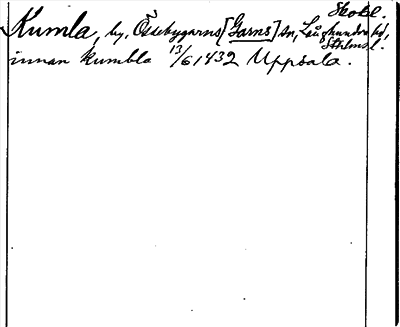 Skokl.
Kumla, by, Össebygarns [Garns] sn, Långhundra hd,
Sthlms l.
innan kumbla 13/6 1432 Uppsala.